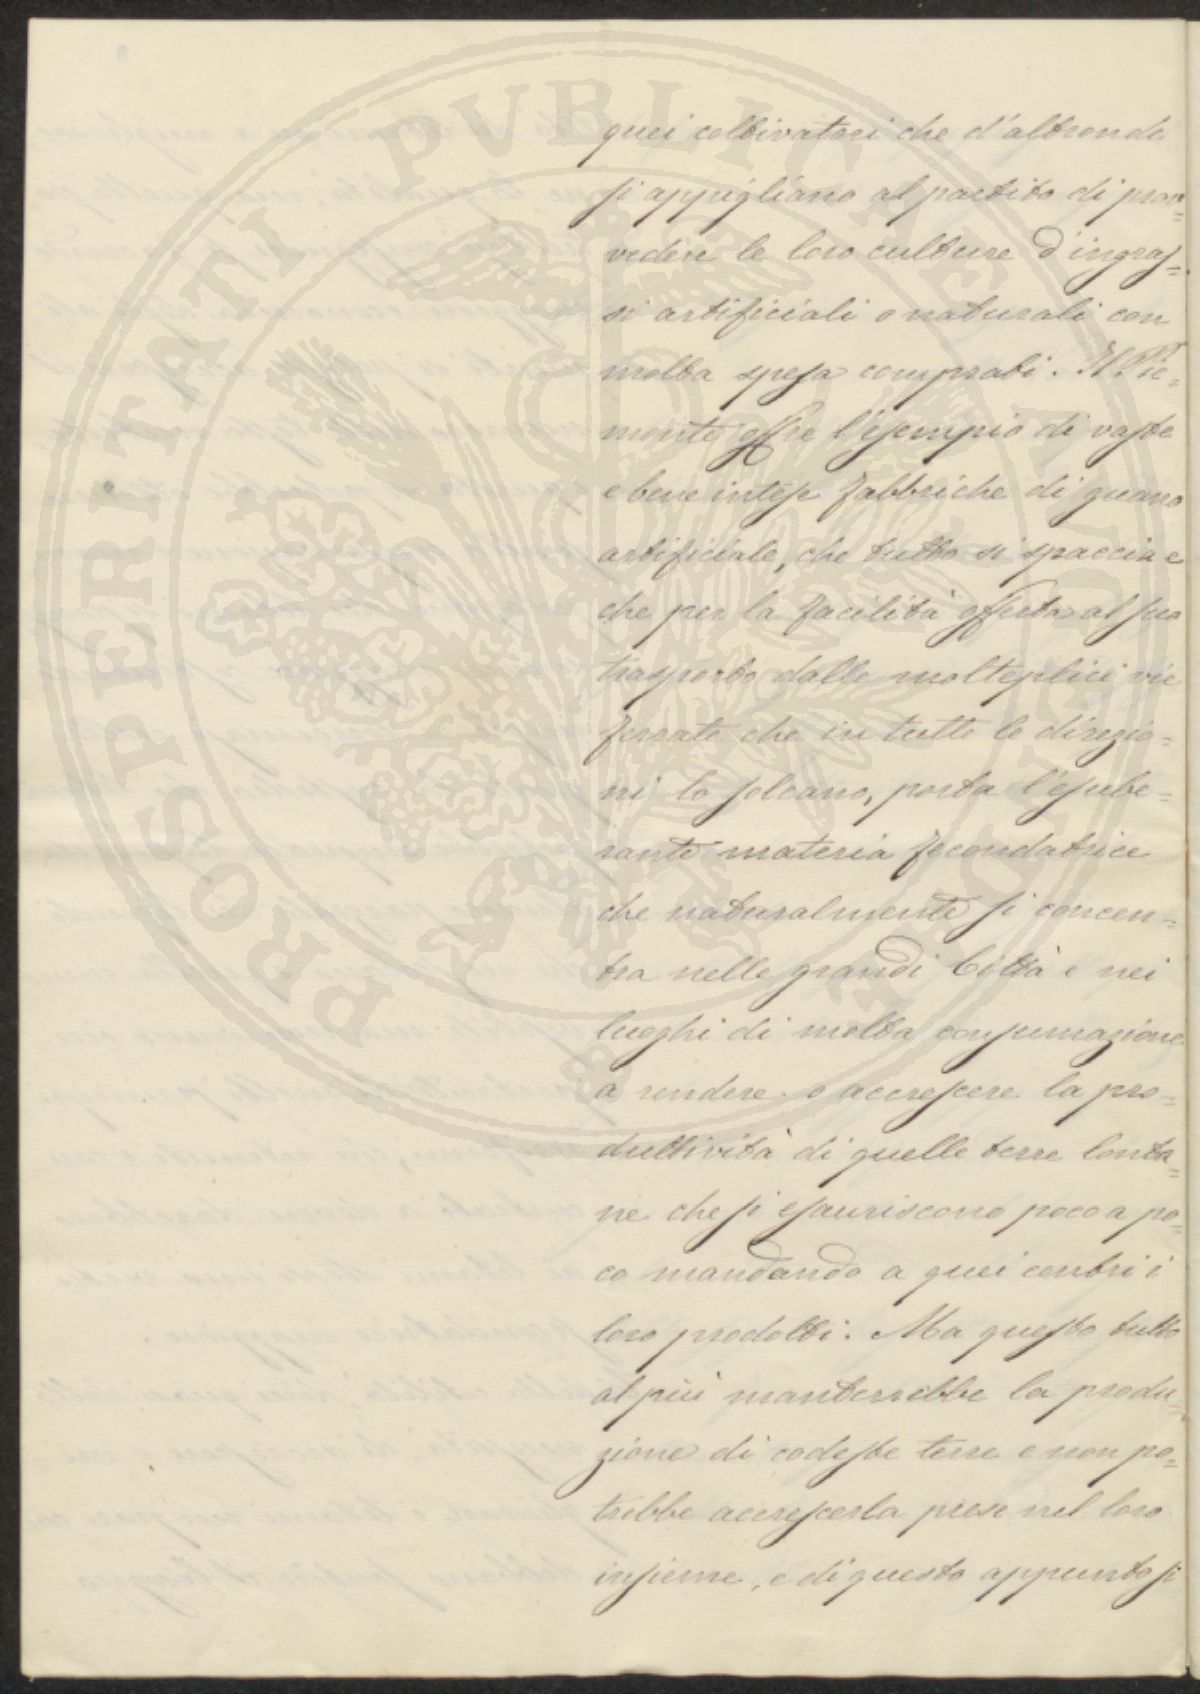 quei coltivatori che d'altronde
si appigliano al partito di prov=
vedere le loro culture d'ingras=
si artificiali o naturali con
molta spesa comprati. Il Pie=
monte offre l'esempio di vaste
e bene intese fabbriche di guano
artificiale, che tutto si spaccia e
che per la facilità offerta al suo
trasporto dalle molteplici vie
ferrate che in tutte le direzio=
ni lo solcano, porta l'esube=
rante materia fecondatrice
che naturalmente si concen=
tra nelle grandi Città e nei
luoghi di molta consumazione
a rendere o accrescere la pro=
duttività di quelle terre lonta=
ne che si esauriscono poco a po=
co mandando a quei centri i
loro prodotti. Ma questo tutto
al più manterrebbe la produ=
zione di codeste terre e non po=
trebbe accrescerla prese nel loro
insieme, e di questo appunto si
PROSPERITATI PUBLICAE AUGENDAE